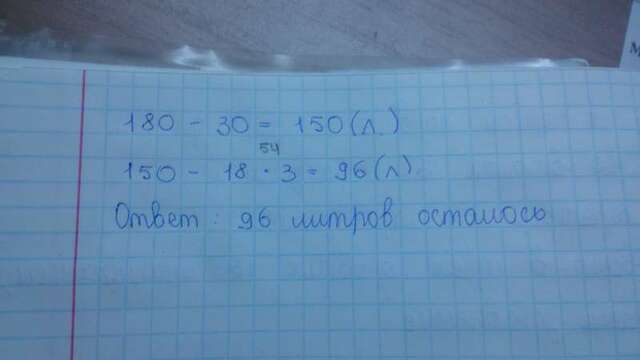 180 - 30 = 150 (л.)
54
150 - 18 · 3 = 96 (л).
Ответ: 96 литров осталось